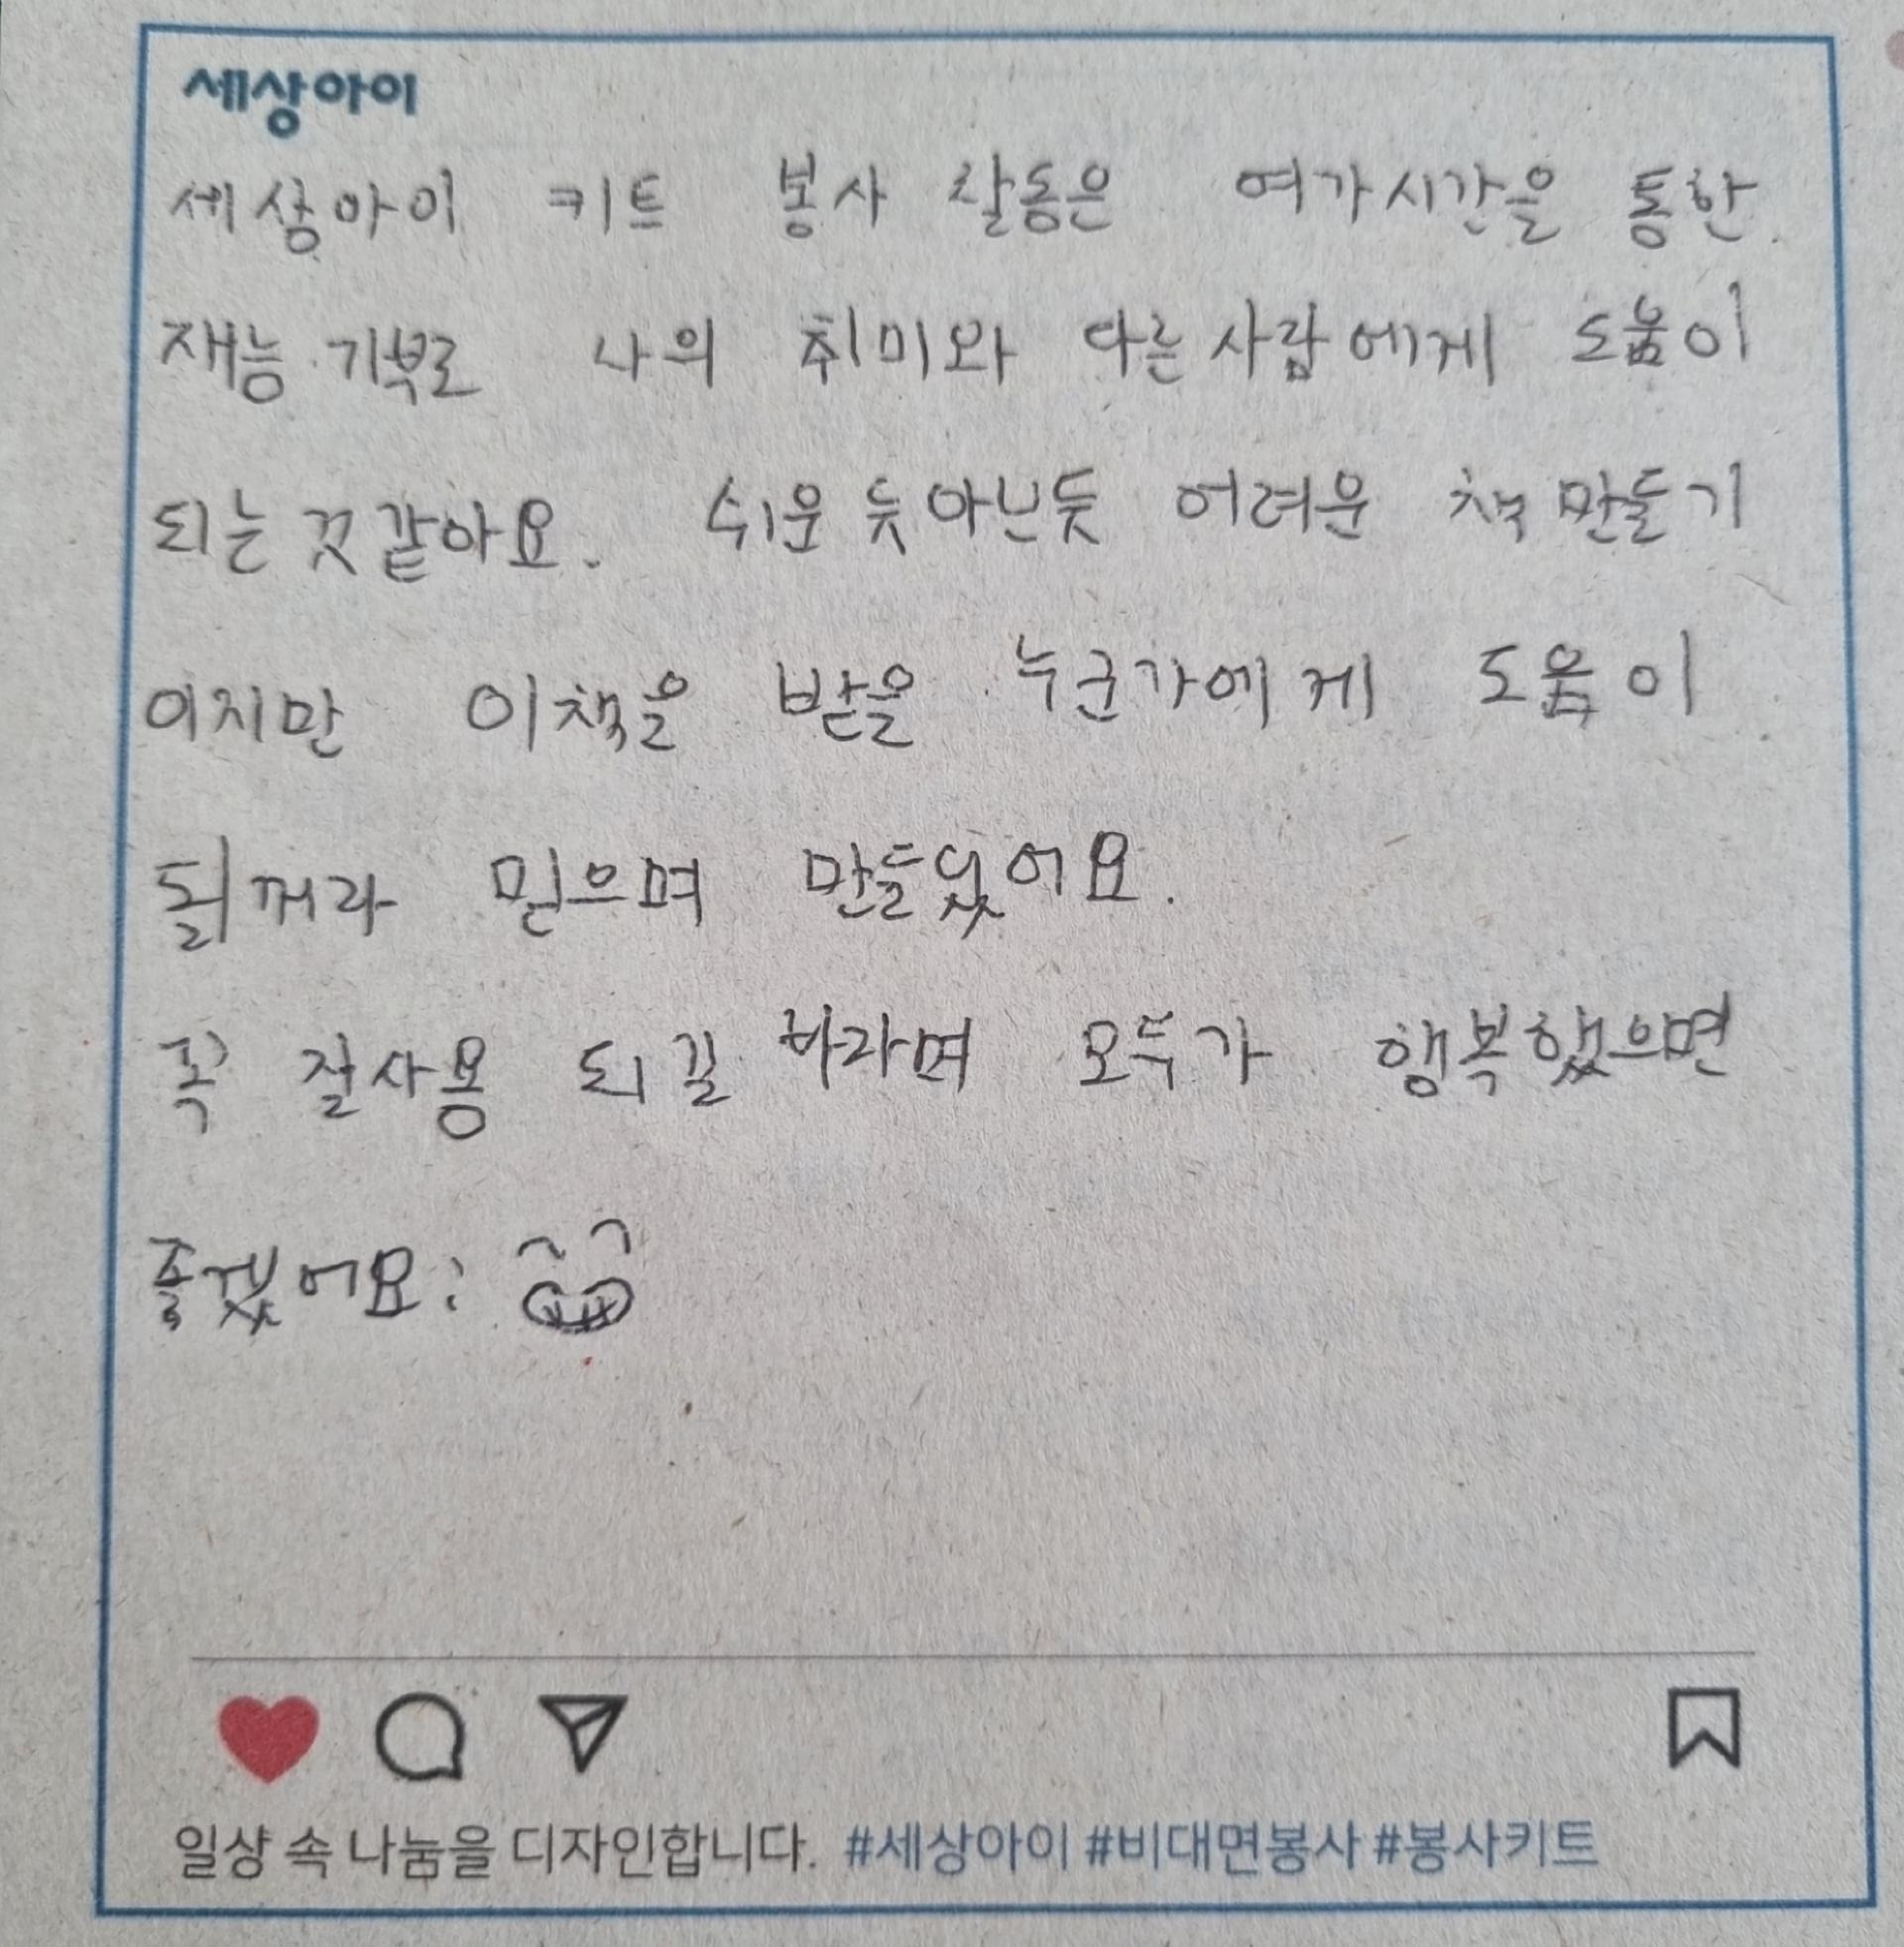 세상아이
세상아이 키트 봉사 활동은 여가시간을 통한
재능 기부로 나의 취미와 다른사람에게 도움이
되는것같아요. 쉬운듯아닌듯 어려운 책만들기
이지만 이책을 받을 누군가에게 도움이
될꺼라 믿으며 만들었어요.
꼭 잘사용 되길 바라며 모두가 행복했으면
좋겠어요:
일상 속 나눔을 디자인합니다. #세상아이 #비대면봉사 #봉사키트